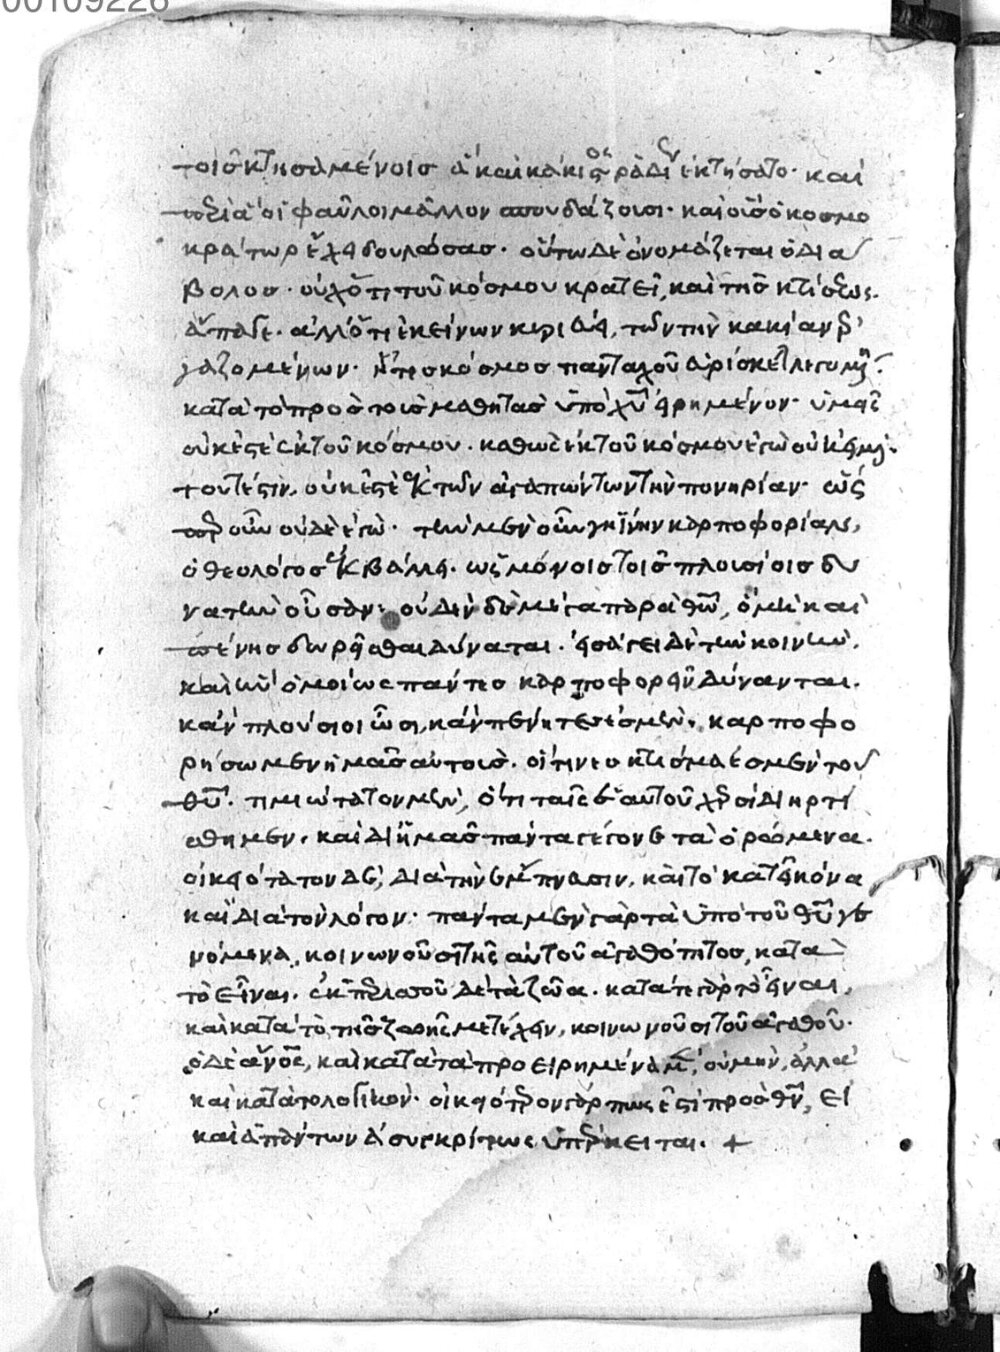 00109226
τοῖς κτησαμένοις ἃ καὶ κάκιστος ῥαδίως ἐκτήσατο· καὶ
οἱ φαῦλοι μᾶλλον σπουδάζουσι· καὶ οἷς ὁ κοσμο
κράτωρ ἔχει δουλώσας· οὕτω δὲ ὀνομάζεται ὁ διά
βολος· οὐχ ὅτι τοῦ κόσμου κρατεῖ, καὶ τῆς κτίσεως.
ἄπαγε· ἀλλ' ὅτι ἐκείνων κυριεύει, τῶν τὴν κακίαν ἐρ
γαζομένων· κόσμος πανταχοῦ εὑρίσκεται
κατὰ τὸ πρὸς τοὺς μαθητὰς ὑπὸ χυ εἰρημένον· ὑμεῖς
οὐκ ἐστὲ ἐκ τοῦ κόσμου· καθὼς ἐκ τοῦ κόσμου ἐγὼ οὐκ εἰμί·
τουτέστιν, οὐκ ἐστὲ ἐκ τῶν ἀγαπώντων τὴν πονηρίαν· ὥς
περ οὖν οὐδὲ ἐγώ· τὴν μὲν οὖν γηΐνην καρποφορίαν,
ὁ θεολόγος ἐκβάλλει· ὡς μόνοις τοῖς πλουσίοις δυ
νατὴν οὖσαν· οὐδὲν δὲ μέγα παρὰ θῶ, ὃ μὴ καὶ
πένης δωρεῖσθαι δύναται· εἰσάγει δὲ τὴν κοινὴν,
καὶ ἣν ὁμοίως πάντες καρποφορεῖν δύνανται.
κἂν πλούσιοι ὦσι, κἂν πένητες· καρποφο
ρήσωμεν ἡμᾶς αὐτούς· οἵτινες κτῆμά ἐσμεν τοῦ
θυ· τιμιώτατον μὲν, ὅτι ταῖς αὐτοῦ χερσὶ διηρτί
σθημεν· καὶ δι' ἡμᾶς πάντα γέγονε τὰ ὁρώμενα.
οἰκειότατον δὲ, διὰ τὴν ἔμπνευσιν, καὶ τὸ κατ' εἰκόνα
καὶ διὰ τὸν λόγον· πάντα μὲν γὰρ τὰ ὑπὸ τοῦ θυ γε
νόμενα, κοινωνοῦσι τῆς αὐτοῦ ἀγαθότητος, κατὰ
τὸ εἶναι· ἐκ περισσοῦ δὲ τὰ ζῶα· κατά τε γὰρ τὸ εἶναι,
καὶ κατὰ τὸ τῆς ζωῆς μετέχειν, κοινωνοῦσι τοῦ ἀγαθοῦ·
ὁ δὲ ἄνος, καὶ κατὰ τὰ προειρημένα μὲν, οὐ μὴν, ἀλλὰ
καὶ κατὰ τὸ λογικόν· οἰκειότερον γάρ πως ἐστὶ πρὸς θν, εἰ
καὶ ἁπάντων ἀσυγκρίτως ὑπέρκειται· +